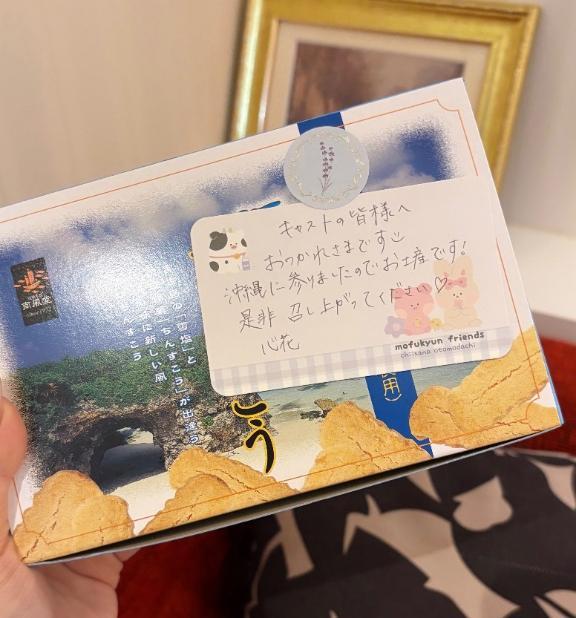 キャストの皆様へ
おつかれさまです
沖縄に参りましたのでお土産です!
是非 召し上がってください♡
心花
mofukyun friends
chiikana otomodachi
南風堂
since 1972
の「雪塩」と
「ちんすこう」が出逢う
に新しい風
すこう
こう
用)